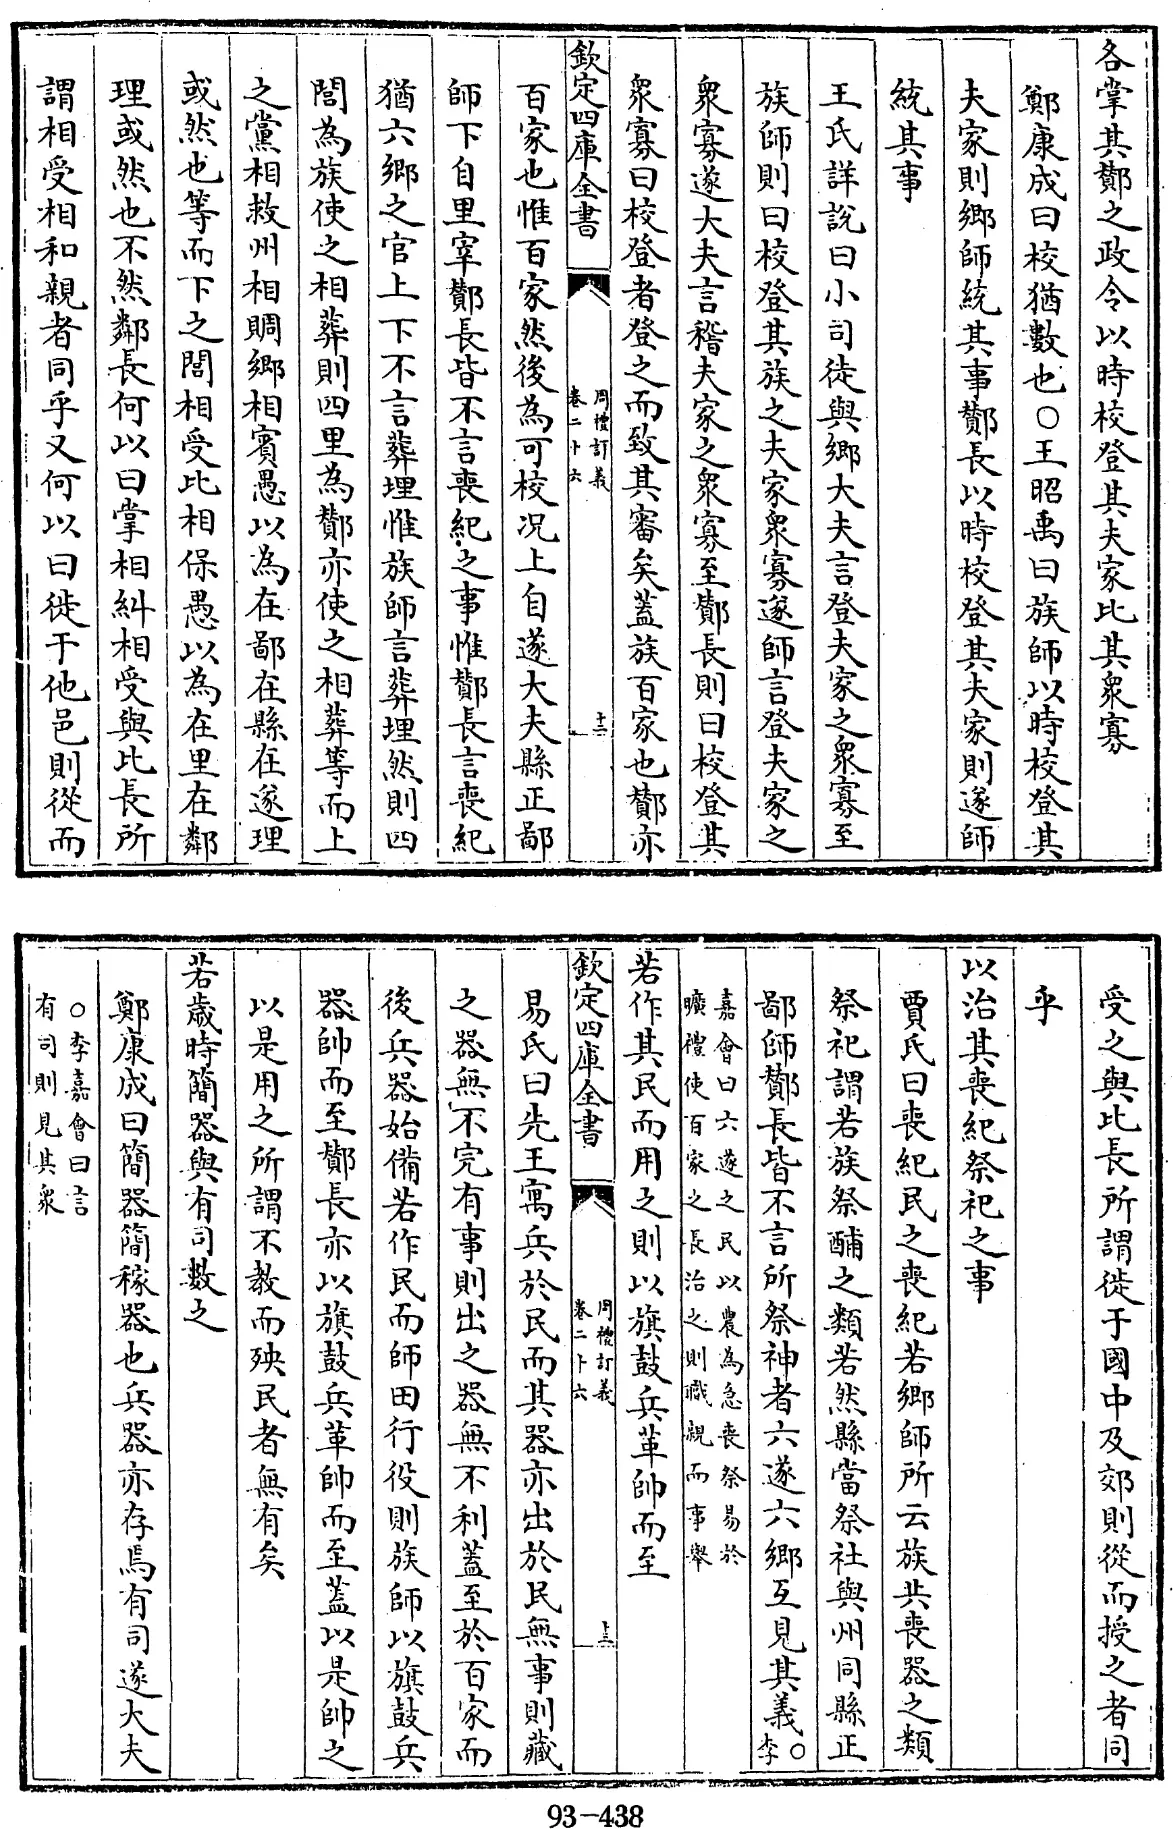 各掌其酇之政令以時校登其夫家比其衆寡
鄭康成曰校猶數也○王昭禹曰族師以時校登其
夫家則鄉師統其事酇長以時校登其夫家則遂師
統其事
王氏詳說曰小司徒與鄉大夫言登夫家之衆寡至
族師則曰校登其族之夫家衆寡遂師言登夫家之
衆寡遂大夫言稽夫家之衆寡至酇長則曰校登其
衆寡曰校登者登之而致其審矣蓋族百家也酇亦
欽定四庫全書
周禮訂義
卷二十六
十二
百家也惟百家然後為可校况上自遂大夫縣正鄙
師下自里宰酇長皆不言喪紀之事惟酇長言喪紀
猶六鄉之官上下不言葬埋惟族師言葬埋然則四
閭為族使之相葬則四里為酇亦使之相葬等而上
之黨相救州相賙鄉相賓愚以為在鄙在縣在遂理
或然也等而下之閭相受比相保愚以為在里在鄰
理或然也不然鄰長何以曰掌相糾相受與比長所
謂相受相和親者同乎又何以曰徙于他邑則從而
受之與比長所謂徙于國中及郊則從而授之者同
乎
以治其喪紀祭祀之事
賈氏曰喪紀民之喪紀若鄉師所云族共喪器之類
祭祀謂若族祭酺之類若然縣當祭社與州同縣正
鄙師酇長皆不言所祭神者六遂六鄉互見其義○李
嘉會曰六遂之民以農為急喪祭易於
曠禮使百家之長治之則職親而事舉
若作其民而用之則以旗鼓兵革帥而至
欽定四庫全書
周禮訂義
卷二十六
十三
易氏曰先王寓兵於民而其器亦出於民無事則藏
之器無不完有事則出之器無不利蓋至於百家而
後兵器始備若作民而師田行役則族師以旗鼓兵
器帥而至酇長亦以旗鼓兵革帥而至蓋以是帥之
以是用之所謂不教而殃民者無有矣
若歲時簡器與有司數之
鄭康成曰簡器簡稼器也兵器亦存焉有司遂大夫
○李嘉會曰言
有司則見其衆
93-438